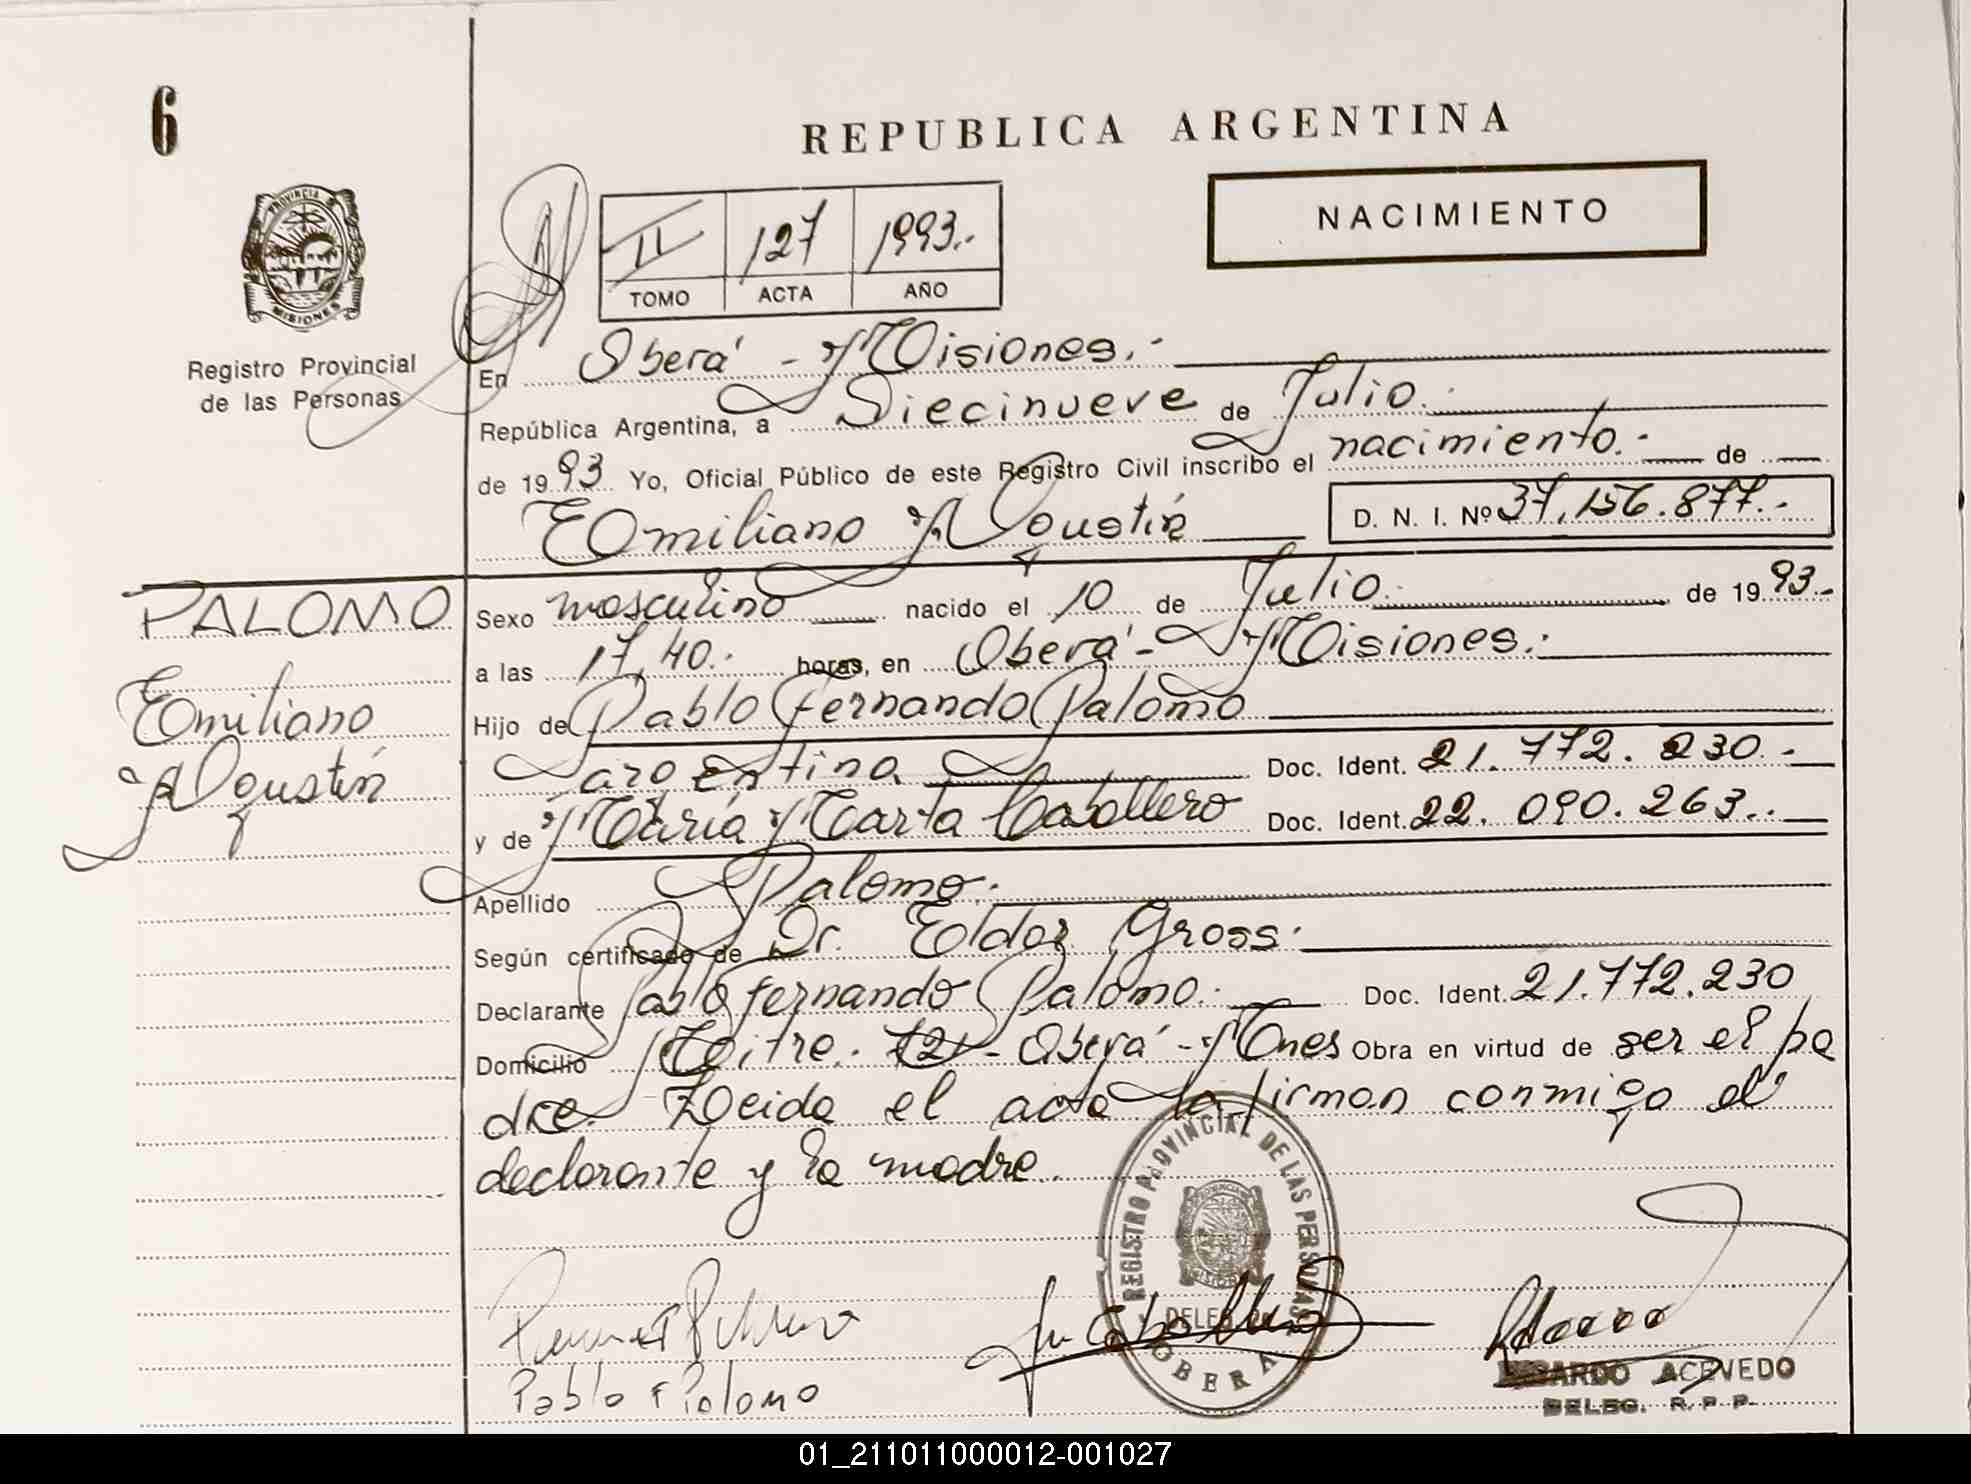 6
REPUBLICA ARGENTINA
NACIMIENTO
II 127 1993.-
TOMO ACTA AÑO
PROVINCIA DE
MISIONES
Registro Provincial
de las Personas
En Oberá - Misiones.-
República Argentina, a Diecinueve de Julio.
de 1993 Yo, Oficial Público de este Registro Civil inscribo el nacimiento.- de
Emiliano Agustín D. N. I. Nº 37.156.877.-
PALOMO
Emiliano
Agustín
Sexo masculino nacido el 10 de Julio. de 1993.-
a las 17,40.- horas, en Oberá - Misiones.-
Hijo de Pablo Fernando Palomo
argentina Doc. Ident. 21.772.230.-
y de María Marta Caballero Doc. Ident. 22.090.263.-
Apellido Palomo.
Según certificado de Dr. Eldor Gross.
Declarante Pablo Fernando Palomo. Doc. Ident. 21.772.230
Domicilio Mitre. - Oberá - Mnes Obra en virtud de ser el pa
dre. Leida el acta la firman conmigo el
declarante y la madre.
REGISTRO PROVINCIAL DE LAS PERSONAS
OBERA
Caballero
Pablo F Palomo
RICARDO ACEVEDO
DELEG. R. P. P.
01_211011000012-001027